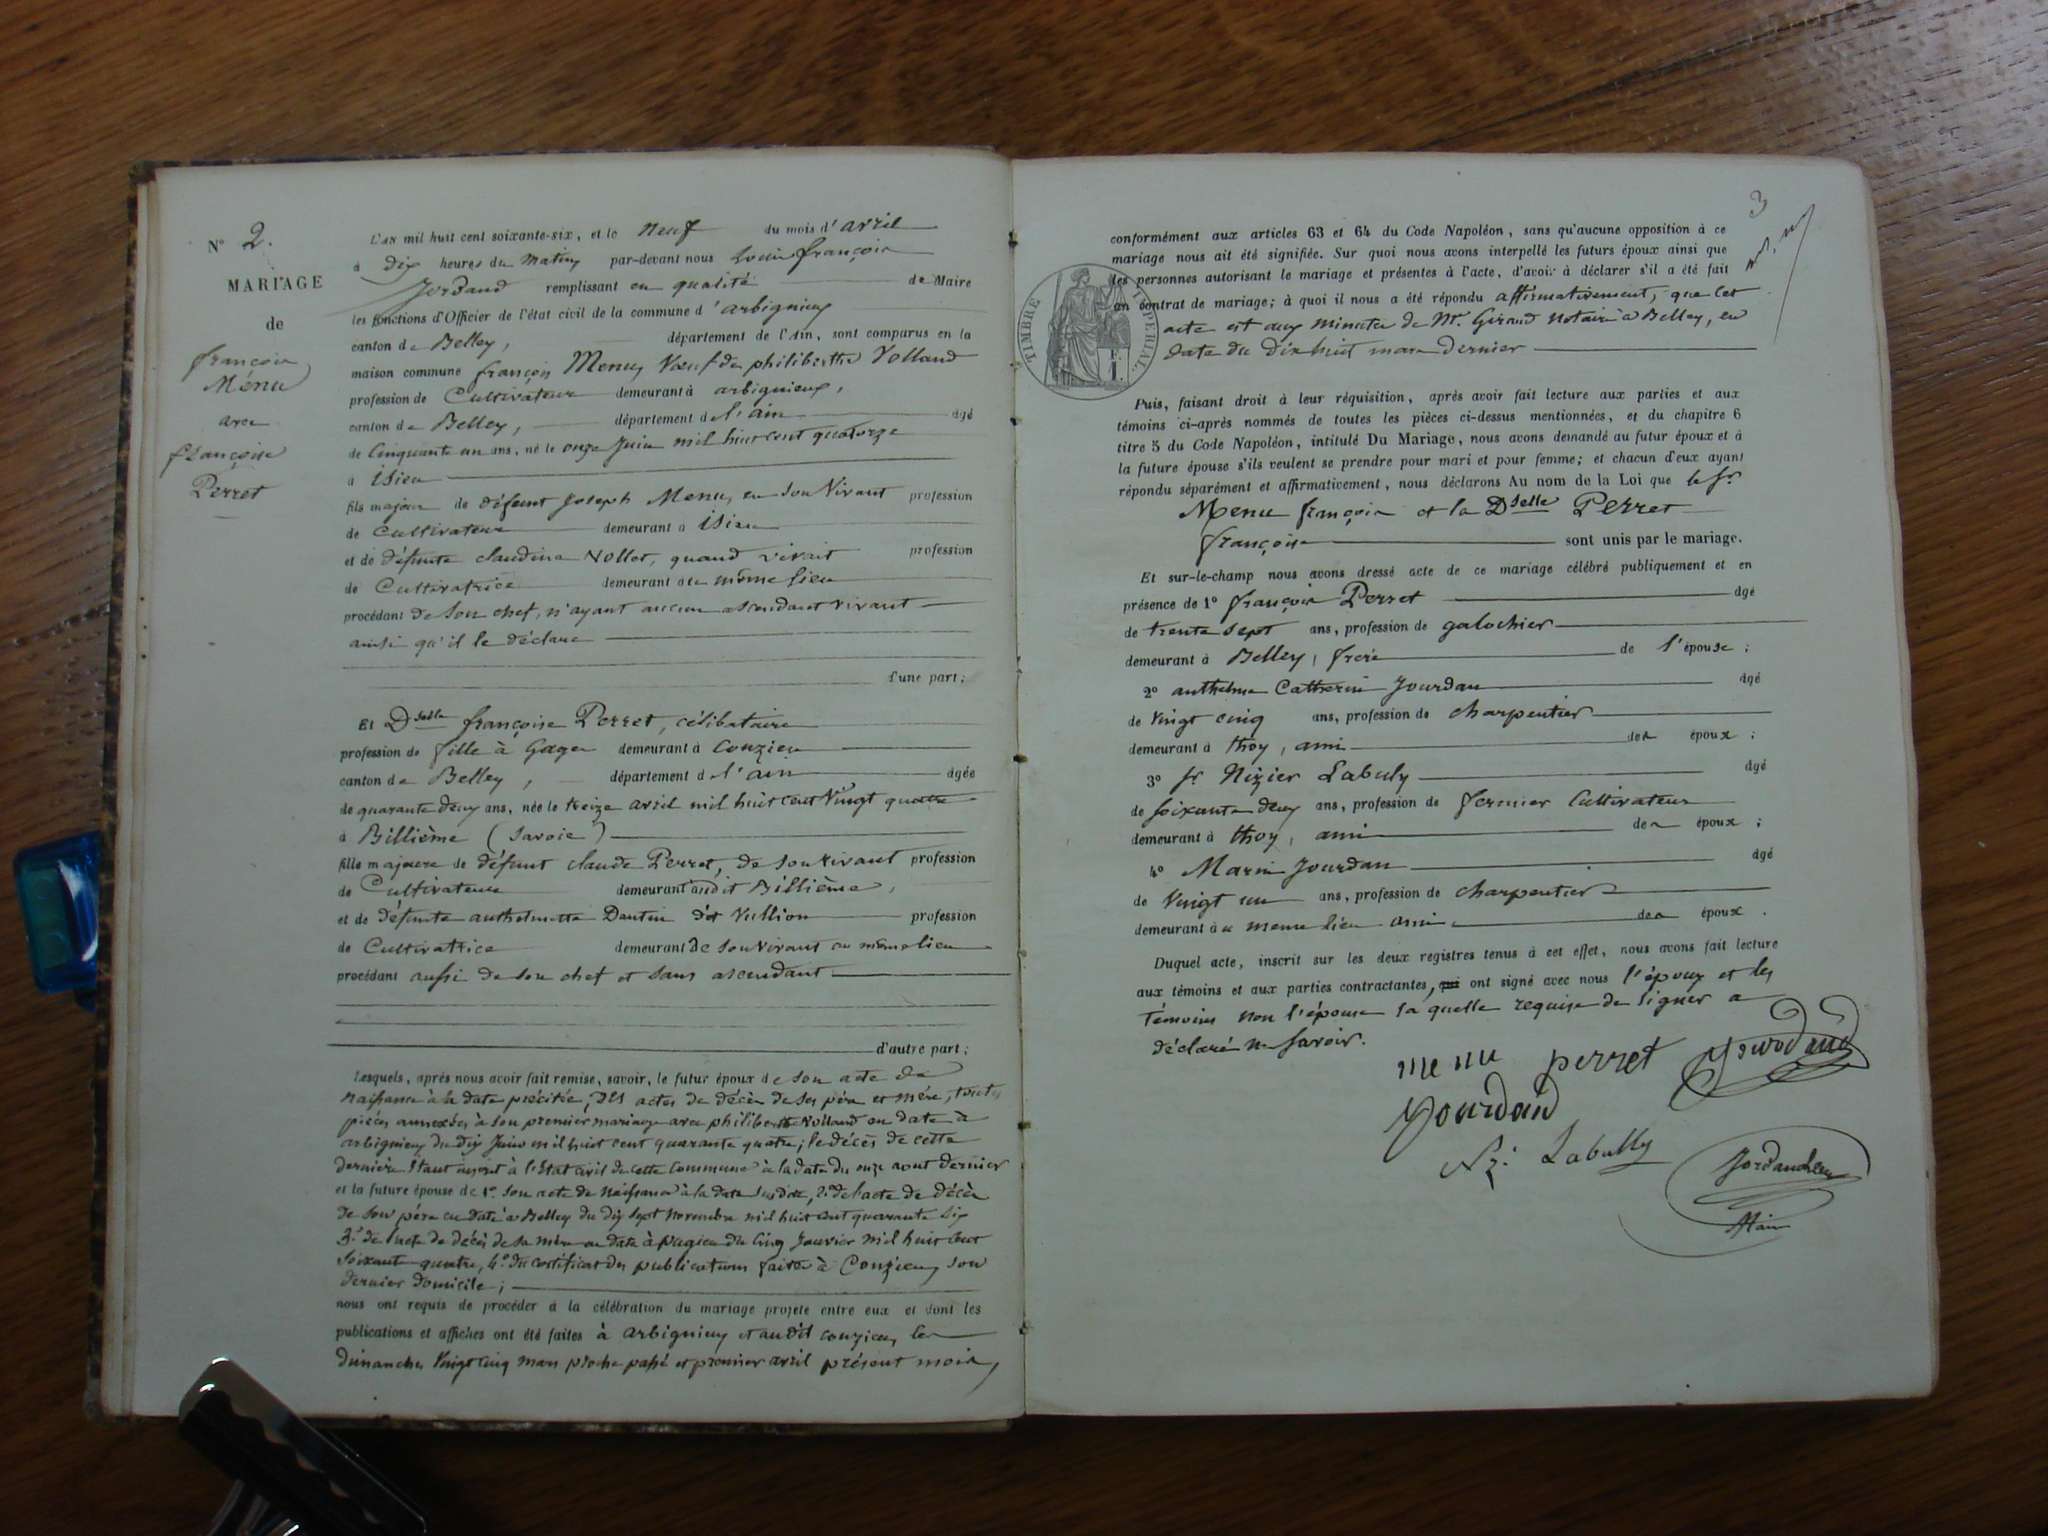 N° 2.
MARIAGE
de
françois
Menu
avec
françoise
Perret
L'AN mil huit cent soixante-six, et le neuf du mois d'avril
à dix heures du matin par-devant nous Louis françois
Jordand remplissant en qualité de Maire
les fonctions d'Officier de l'état civil de la commune d'arbignieu
canton de Belley, département de l'Ain, sont comparus en la
maison commune françois Menu, Vœuf de philiberthe Volland
profession de Cultivateur demeurant à arbignieux,
canton de Belley, département de l'ain âgé
de Cinquante un ans, né le onze Juin mil huit cent quatorze
à isieu
fils majeur de défunt Joseph Menu, en son Vivant profession
de cultivateur demeurant à isieu
et de défunte claudine Vollet, quand vivait profession
de Cultivatrice demeurant au même lieu
procédant de son chef, n'ayant aucun ascendant vivant
ainsi qu'il le déclare
d'une part;
Et Dselle françoise Perret, célibataire
profession de fille à Gage demeurant à conzieu
canton de Belley, département de l'ain âgée
de quarante deux ans, née le treize avril mil huit cent Vingt quatre
à Billième (Savoie)
fille majeure de défunt claude Perret, de son vivant profession
de Cultivateur demeurant audit Billième,
et de défunte anthelmette Dantin dit Vullion profession
de Cultivatrice demeurant de son vivant au même lieu
procédant aussi de son chef et sans ascendant
d'autre part;
Lesquels, après nous avoir fait remise, savoir, le futur époux de son acte de
naissance à la date précitée, des actes de décès de ses père et mère, toutes
pièces annexées à son premier mariage avec philiberthe Volland en date à
arbignieu du dix Juin mil huit cent quarante quatre; le décès de cette
dernière étant inscrit à l'état civil de cette Commune à la date du onze aout dernier
et la future épouse de 1° son acte de naissance à la date susdite, 2° de l'acte de décès
de son père en date à Belley du dix sept novembre mil huit cent quarante six
3° de l'acte de décès de sa mère en date à pugieu du cinq Janvier mil huit cent
soixante quatre, 4° du certificat des publications faites à Conzieu, son
dernier domicile;
nous ont requis de procéder à la célébration du mariage projeté entre eux et dont les
publications et affiches ont été faites à arbignieu et audit conzieu les
dimanches Vingt cinq mars proche passé et premier avril présent mois,
3
conformément aux articles 63 et 64 du Code Napoléon, sans qu'aucune opposition à ce
mariage nous ait été signifiée. Sur quoi nous avons interpellé les futurs époux ainsi que
les personnes autorisant le mariage et présentes à l'acte, d'avoir à déclarer s'il a été fait
un contrat de mariage; à quoi il nous a été répondu affirmativement, que cet
acte est aux minutes de Me. Giraud Notaire à Belley, en
date du dix huit mars dernier
TIMBRE IMPÉRIAL.
F.
1.
Puis, faisant droit à leur réquisition, après avoir fait lecture aux parties et aux
témoins ci-après nommés de toutes les pièces ci-dessus mentionnées, et du chapitre 6
titre 5 du Code Napoléon, intitulé Du Mariage, nous avons demandé au futur époux et à
la future épouse s'ils veulent se prendre pour mari et pour femme; et chacun d'eux ayant
répondu séparément et affirmativement, nous déclarons Au nom de la Loi que le Sr
Menu françois et la Dselle Perret
françoise sont unis par le mariage.
Et sur-le-champ nous avons dressé acte de ce mariage célébré publiquement et en
présence de 1° françois Perret âgé
de trente sept ans, profession de galochier
demeurant à Belley, frère de l'épouse;
2° anthelme Catherin Jourdan âgé
de Vingt cinq ans, profession de charpentier
demeurant à thoy, ami des époux;
3° Sr Nizier Labuly âgé
de soixante deux ans, profession de fermier Cultivateur
demeurant à thoy, ami des époux;
4° Marin Jourdan âgé
de Vingt un ans, profession de charpentier
demeurant au meme lieu ami des époux.
Duquel acte, inscrit sur les deux registres tenus à cet effet, nous avons fait lecture
aux témoins et aux parties contractantes, qui ont signé avec nous l'époux et les
témoins non l'épouse la quelle requise de signer a
déclaré ne savoir.
menu perret Jourdand
Jourdand
Nz. Labully
Maire